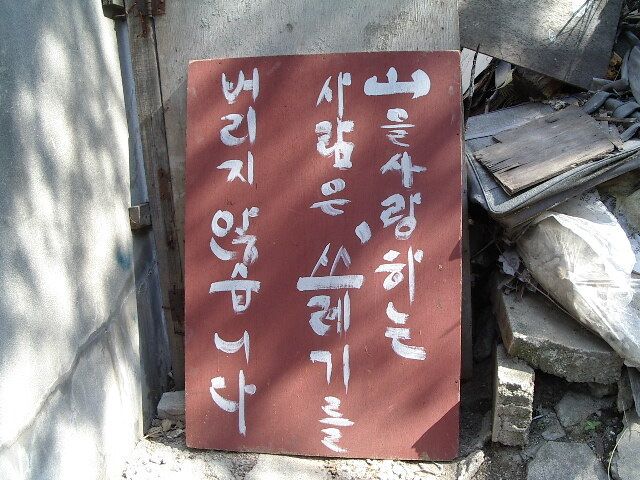 山을사랑하는
사람은, 쓰레기를
버리지 않습니다